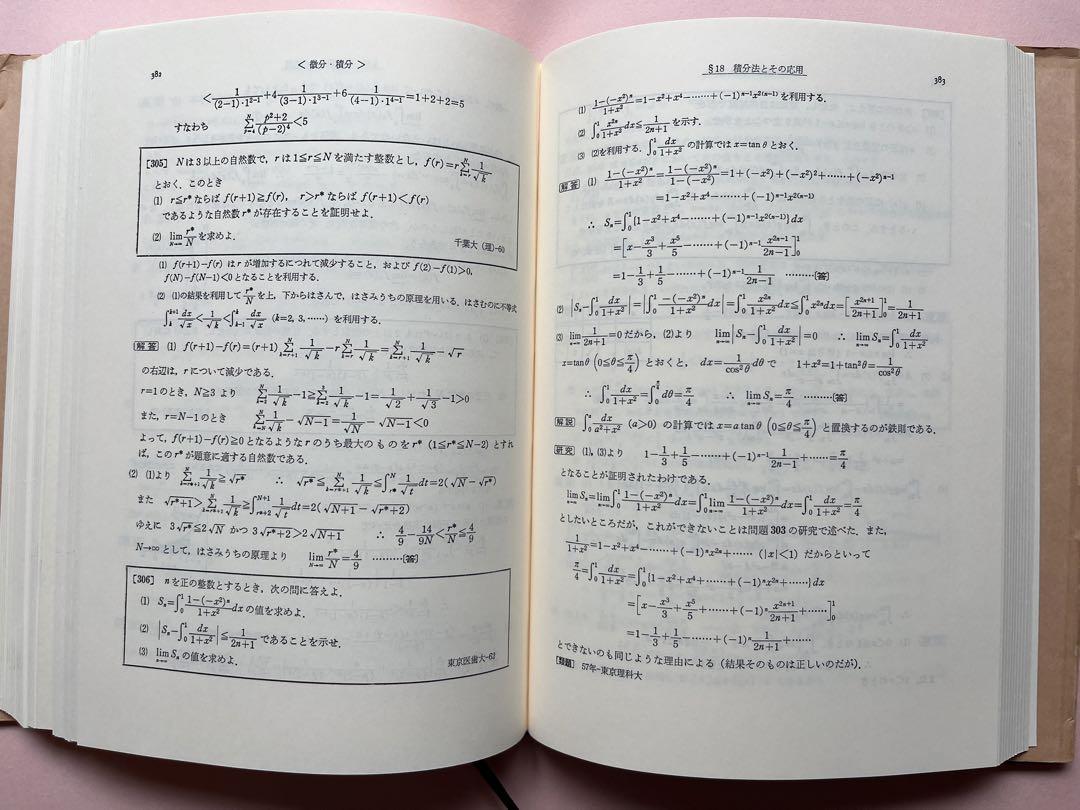 382
< 微分・積分 >
<1/((2−1)·1^{2−1})+4 1/((3−1)·1^{3−1})+6 1/((4−1)·1^{4−1})=1+2+2=5
すなわち
[305] Nは3以上の自然数で, rは1≦r≦Nを満たす整数とし, f(r)=r Σ_{k=r}^{N} 1/√k
とおく. このとき
(1) r≦r*ならばf(r+1)≧f(r), r>r*ならばf(r+1)<f(r)
であるような自然数r*が存在することを証明せよ.
(2) lim_{N→∞} r*/N を求めよ.
千葉大 (理)-60
(1) f(r+1)−f(r) はrが増加するにつれて減少すること, および f(2)−f(1)>0,
f(N)−f(N−1)<0となることを利用する.
(2) (1)の結果を利用して r*/N を上, 下からはさんで, はさみうちの原理を用いる. はさむのに不等式
∫_k^{k+1} dx/√x < 1/√k < ∫_{k−1}^k dx/√x (k=2, 3, ……) を利用する.
解答 (1) f(r+1)−f(r)=(r+1) Σ_{k=r+1}^N 1/√k − r Σ_{k=r}^N 1/√k = Σ_{k=r+1}^N 1/√k − √r
の右辺は, rについて減少である.
r=1のとき, N≧3より Σ_{k=2}^N 1/√k −1≧ Σ_{k=2}^3 1/√k −1= 1/√2 + 1/√3 −1>0
また, r=N−1のとき Σ_{k=N}^N 1/√k − √(N−1) = 1/√N − √(N−1) <0
よって, f(r+1)−f(r)≧0となるようなrのうち最大のものをr* (1≦r*≦N−2) とすれ
ば, このr*が題意に適する自然数である.
(2) (1)より Σ_{k=r*+1}^N 1/√k ≧√r* ∴ √r*≦ Σ_{k=r*+1}^N 1/√k ≦∫_{r*}^N 1/√t dt=2(√N−√r*)
また √(r*+1)> Σ_{k=r*+2}^N 1/√k ≧∫_{r*+2}^{N+1} 1/√t dt=2(√(N+1)−√(r*+2))
ゆえに 3√r*≦2√N かつ 3√(r*+2)>2√(N+1) ∴ 4/9 − 14/9N < r*/N ≦ 4/9
N→∞として, はさみうちの原理より lim_{N→∞} r*/N = 4/9 ………[答]
[306] nを正の整数とするとき, 次の問に答えよ.
(1) S_n=∫_0^1 (1−(−x²)^n)/(1+x²) dxの値を求めよ.
(2) |S_n−∫_0^1 dx/(1+x²)|≦ 1/(2n+1) であることを示せ.
(3) lim_{n→∞} S_nの値を求めよ.
東京医歯大-62
§18 積分法とその応用
383
(1) (1−(−x²)^n)/(1+x²) =1−x²+x⁴−……+(−1)^{n−1}x^{2(n−1)}を利用する.
(2) ∫_0^1 x^{2n}/(1+x²) dx≦ 1/(2n+1) を示す.
(3) (2)を利用する. ∫_0^1 dx/(1+x²) の計算ではx=tanθとおく.
解答 (1) (1−(−x²)^n)/(1+x²) = (1−(−x²)^n)/(1−(−x²)) =1+(−x²)+(−x²)²+……+(−x²)^{n−1}
=1−x²+x⁴−……+(−1)^{n−1}x^{2(n−1)}
∴ S_n=∫_0^1{1−x²+x⁴−……+(−1)^{n−1}x^{2(n−1)}}dx
=[x− x³/3 + x⁵/5 −……+(−1)^{n−1} x^{2n−1}/(2n−1)]_0^1
=1− 1/3 + 1/5 −……+(−1)^{n−1} 1/(2n−1) ………[答]
(2) |S_n−∫_0^1 dx/(1+x²)|=|∫_0^1 −(−x²)^n/(1+x²) dx|=∫_0^1 x^{2n}/(1+x²) dx≦∫_0^1 x^{2n}dx=[x^{2n+1}/(2n+1)]_0^1= 1/(2n+1)
(3) lim_{n→∞} 1/(2n+1) =0だから, (2)より lim_{n→∞}|S_n−∫_0^1 dx/(1+x²)|=0 ∴ lim_{n→∞} S_n=∫_0^1 dx/(1+x²)
x=tanθ (0≦θ≦ π/4) とおくと, dx= 1/cos²θ dθ で 1+x²=1+tan²θ= 1/cos²θ
∴ ∫_0^1 dx/(1+x²) =∫_0^{π/4} dθ= π/4 ∴ lim_{n→∞} S_n= π/4 ………[答]
解説 ∫_0^a dx/(a²+x²) (a>0) の計算では x=a tanθ (0≦θ≦ π/4) と置換するのが鉄則である.
研究 (1), (3)より 1− 1/3 + 1/5 −……+(−1)^{n−1} 1/(2n−1) +……= π/4
となることが証明されたわけである.
lim_{n→∞} S_n=lim_{n→∞}∫_0^1 (1−(−x²)^n)/(1+x²) dx=∫_0^1 lim_{n→∞} (1−(−x²)^n)/(1+x²) dx=∫_0^1 dx/(1+x²) = π/4
としたいところだが, これができないことは問題303の研究で述べた. また,
1/(1+x²) =1−x²+x⁴−……+(−1)^n x^{2n}+…… (|x|<1) だからといって
π/4 =∫_0^1 dx/(1+x²) =∫_0^1{1−x²+x⁴+……+(−1)^n x^{2n}+……}dx
=[x− x³/3 + x⁵/5 −……+(−1)^n x^{2n+1}/(2n+1) +……]_0^1
=1− 1/3 + 1/5 −……+(−1)^n 1/(2n+1) +……
とできないのも同じような理由による (結果そのものは正しいのだが).
[類題] 57年−東京理科大